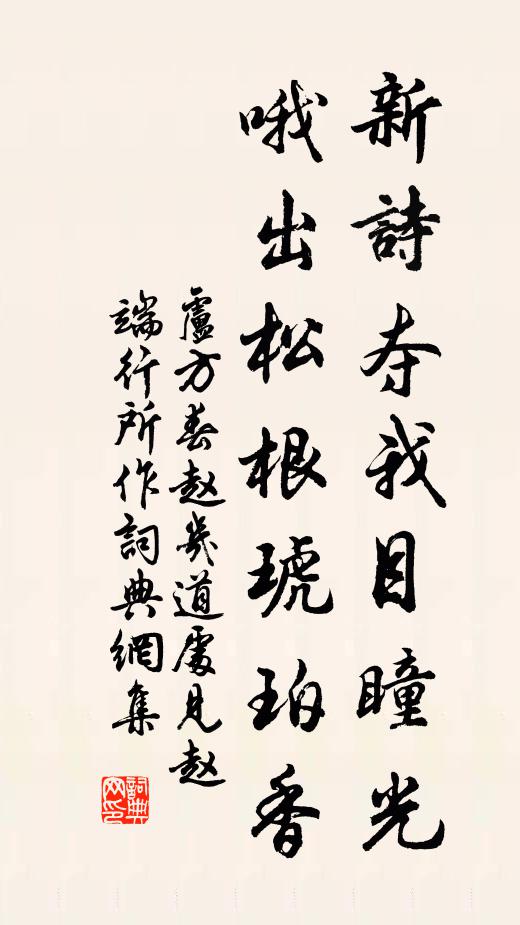 新詩夺我目瞳光
哦出松根琥珀香
盧方春赵幾道處見赵
端行所作詞典網集
詞典
网印